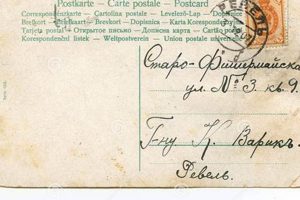 Postkarte – Carte postale – Postcard
Correspondenzkarte – Cartolina postale – Levelező-Lap – Dopisnice
Brefkort – Brevkort – Dopisnica – Karta Korespondencyjna
Tarjeta postal – Открытое письмо – Dopisnica
Korrespondenslist – Weltpostverein – Union postale universelle
РЕВЕЛЬ
Старо-
ул. №3. кв. 9.
Г-ну К. Варик.
Ревель.